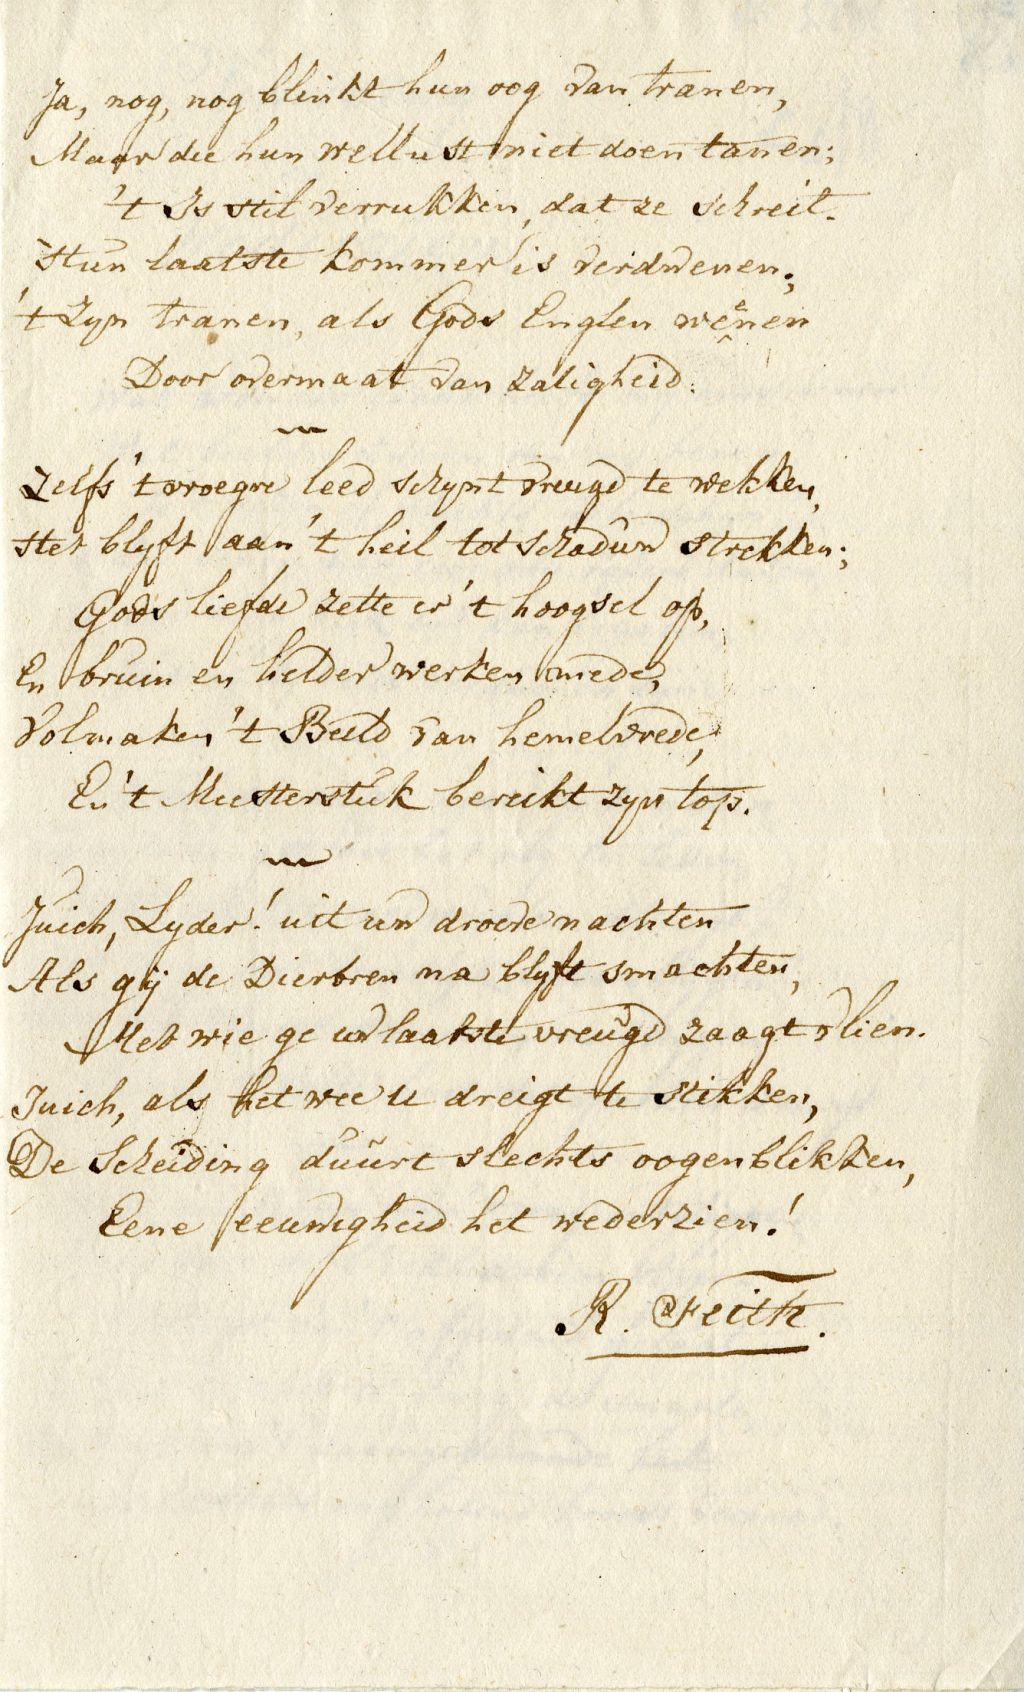 Ja, nog, nog blinkt hun oog van tranen,
Maar die hun wellust niet doen tanen;
't Is stil verrukken, dat ze schreit.
Hun laatste kommer is verdwenen;
't Zyn tranen, als Gods Englen wênen
Door overmaat van zaligheid.
Zelfs 't vroegre leed schynt vreugd te wekken,
Het blyft aan 't heil tot schaduw strekken;
Gods liefde zette er 't hoogsel op,
En bruin en helder werken mede,
Volmaken 't Beeld van hemelvrede,
En 't Meesterstuk bereikt zyn top.
Juich, Lyder! uit uw droeve nachten
Als gij de Dierbren na blyft smachten,
Met wie ge uw laatste vreugd zaagt vlien.
Juich, als het wee u dreigt te stikken,
De Scheiding duurt slechts oogenblikken,
Eene eeuwigheid het wederzien!
R. Feith.